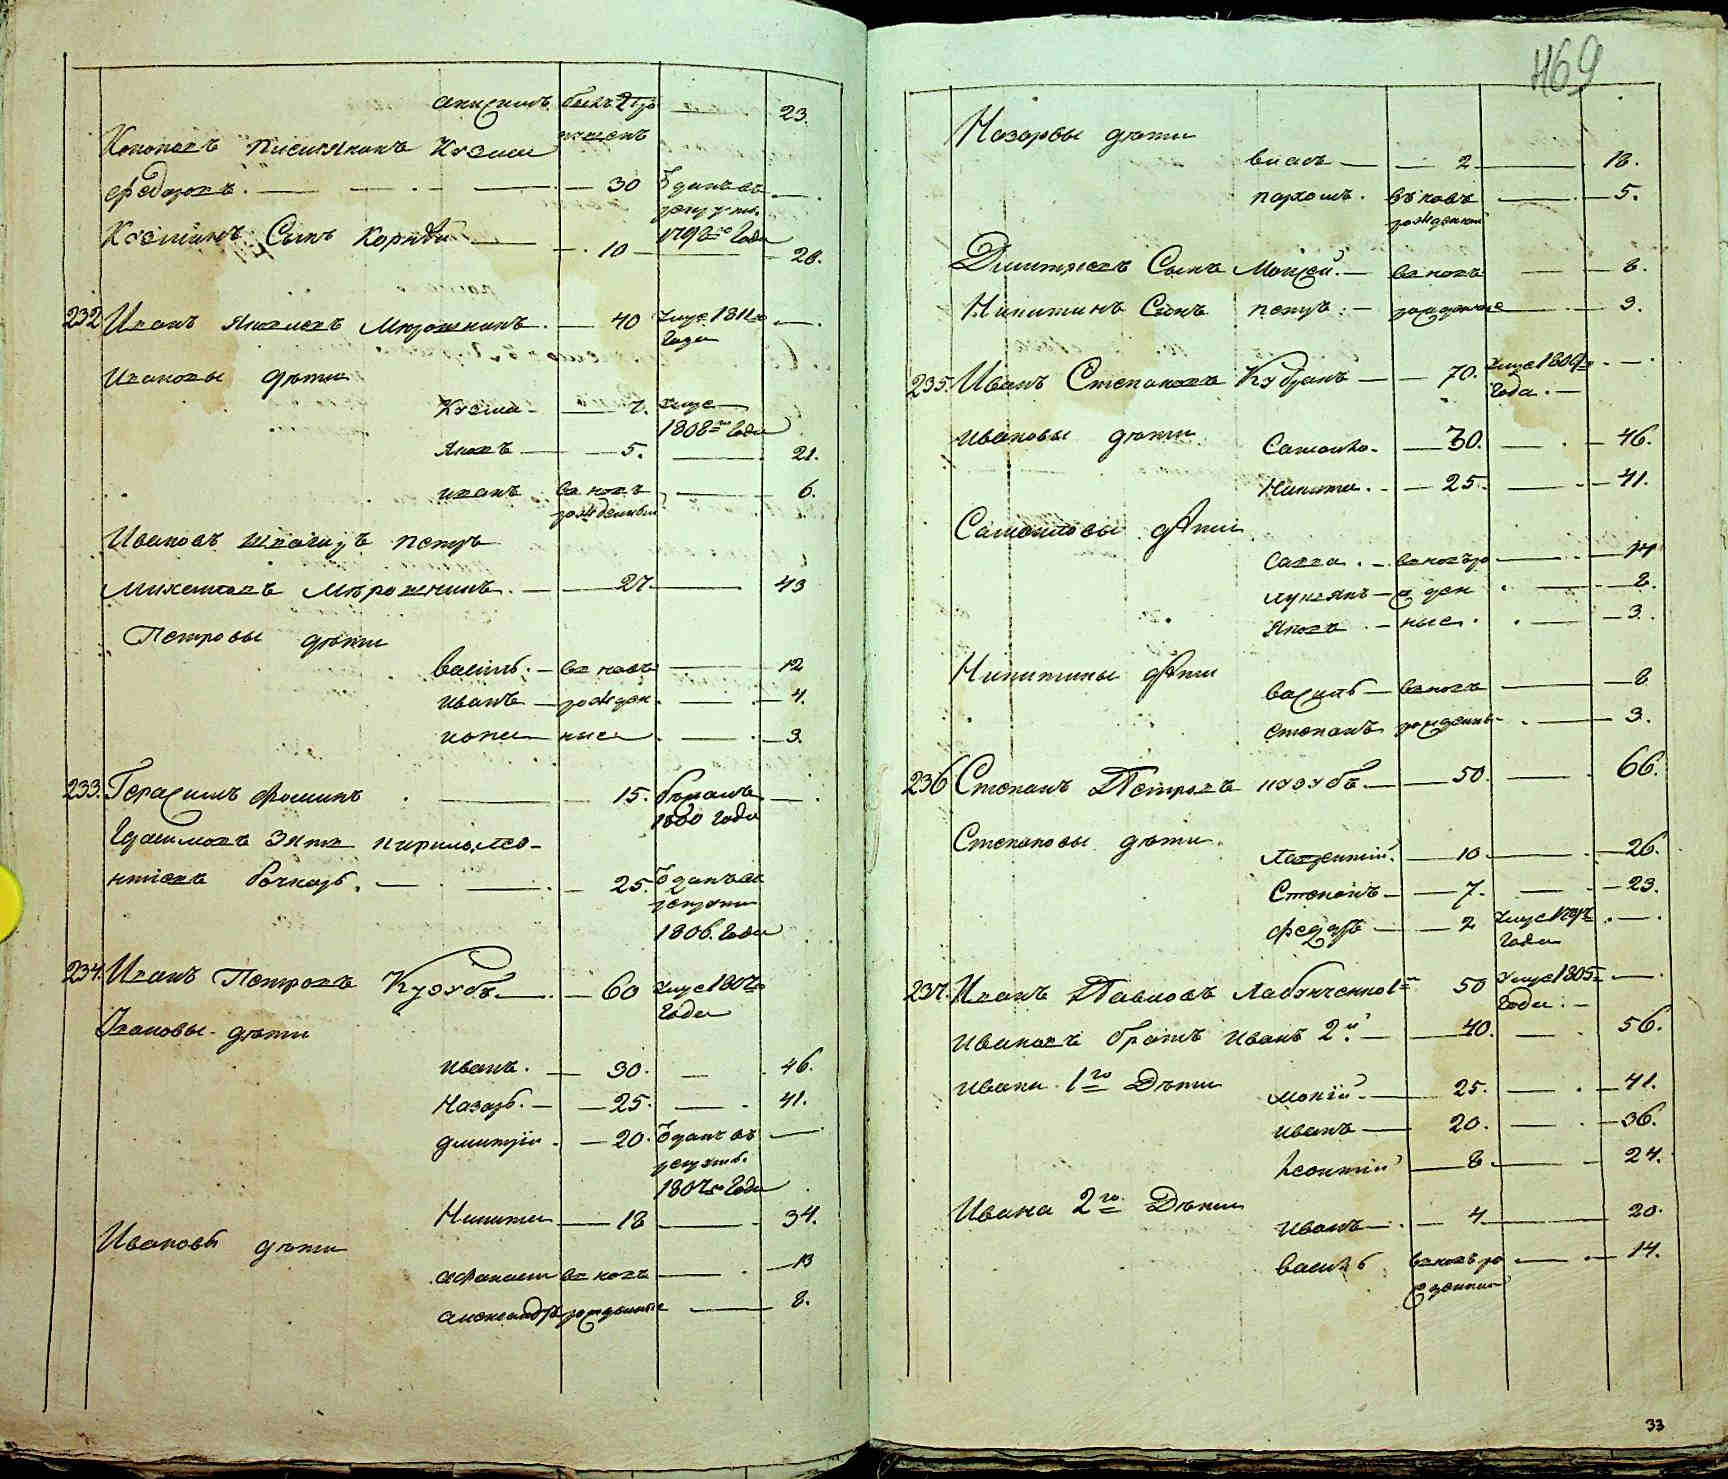 469
23.
Федоровъ. 30 отданъ въ
рекруты.
1792го Года
Козминъ Сынъ Корнѣй 10 28.
232 Иванъ Яковлевъ Мирошникъ. 40 умре 1811го
Года
Ивановы дѣти
Козма 7. умре
1808го Года
Яковъ 5. 21.
иванъ вновь 6.
рожденный
Ивановъ швагиръ петръ
Михайловъ Мирошникъ. 27 43
Петровы дѣти
василь. вновь 12
иванъ рожден 4.
ные 3.
233. Герасимъ Фоминъ 15. бѣжалъ
1800 Года
Герасимовъ Зять кирило лео-
нтіевъ бочкарь. 25. отданъ въ
рекруты
1806. Года
234. Иванъ Петровъ 60 умре 1807го
Года
Ивановы дѣти
иванъ. 30. 46.
Назаръ. 25. 41.
дмитрій. 20. отданъ въ
рекруты.
1807го Года
Никита 18 34.
Ивановы дѣти
афанасій вновь 13
александръ рожденные 8.
Назаровы дѣти
власъ 2 18.
пархомъ. вновь 5.
рожденный
Дмитріевъ Сынъ Моисей. вновь 8.
Никитинъ Сынъ петръ. рожденные 3.
235. Иванъ Степановъ 70. умре
Года.
ивановы дѣти Самойло. 30. 46.
Никита. 25. 41.
Самойловы дѣти
Савва. вновь ро 14
лукьянъ жден 8.
Яковъ ные. 3.
Никитины дѣти
василь вновь 8
степанъ рожденны 3.
236 Степанъ Петровъ 50. 66.
Степановы дѣти.
Лаврентій. 10 26.
Степанъ 7. 23.
Федоръ 2 умре
Года
237. Иванъ Павловъ 1й 50 умре 1805го
Года.
ивановъ братъ иванъ 2й 40. 56.
ивана 1го Дѣти
мокій 25. 41.
иванъ 20. 36.
леонтій 8 24.
Ивана 2го Дѣти
иванъ 4 20.
василь вновь ро 14.
жденный
33